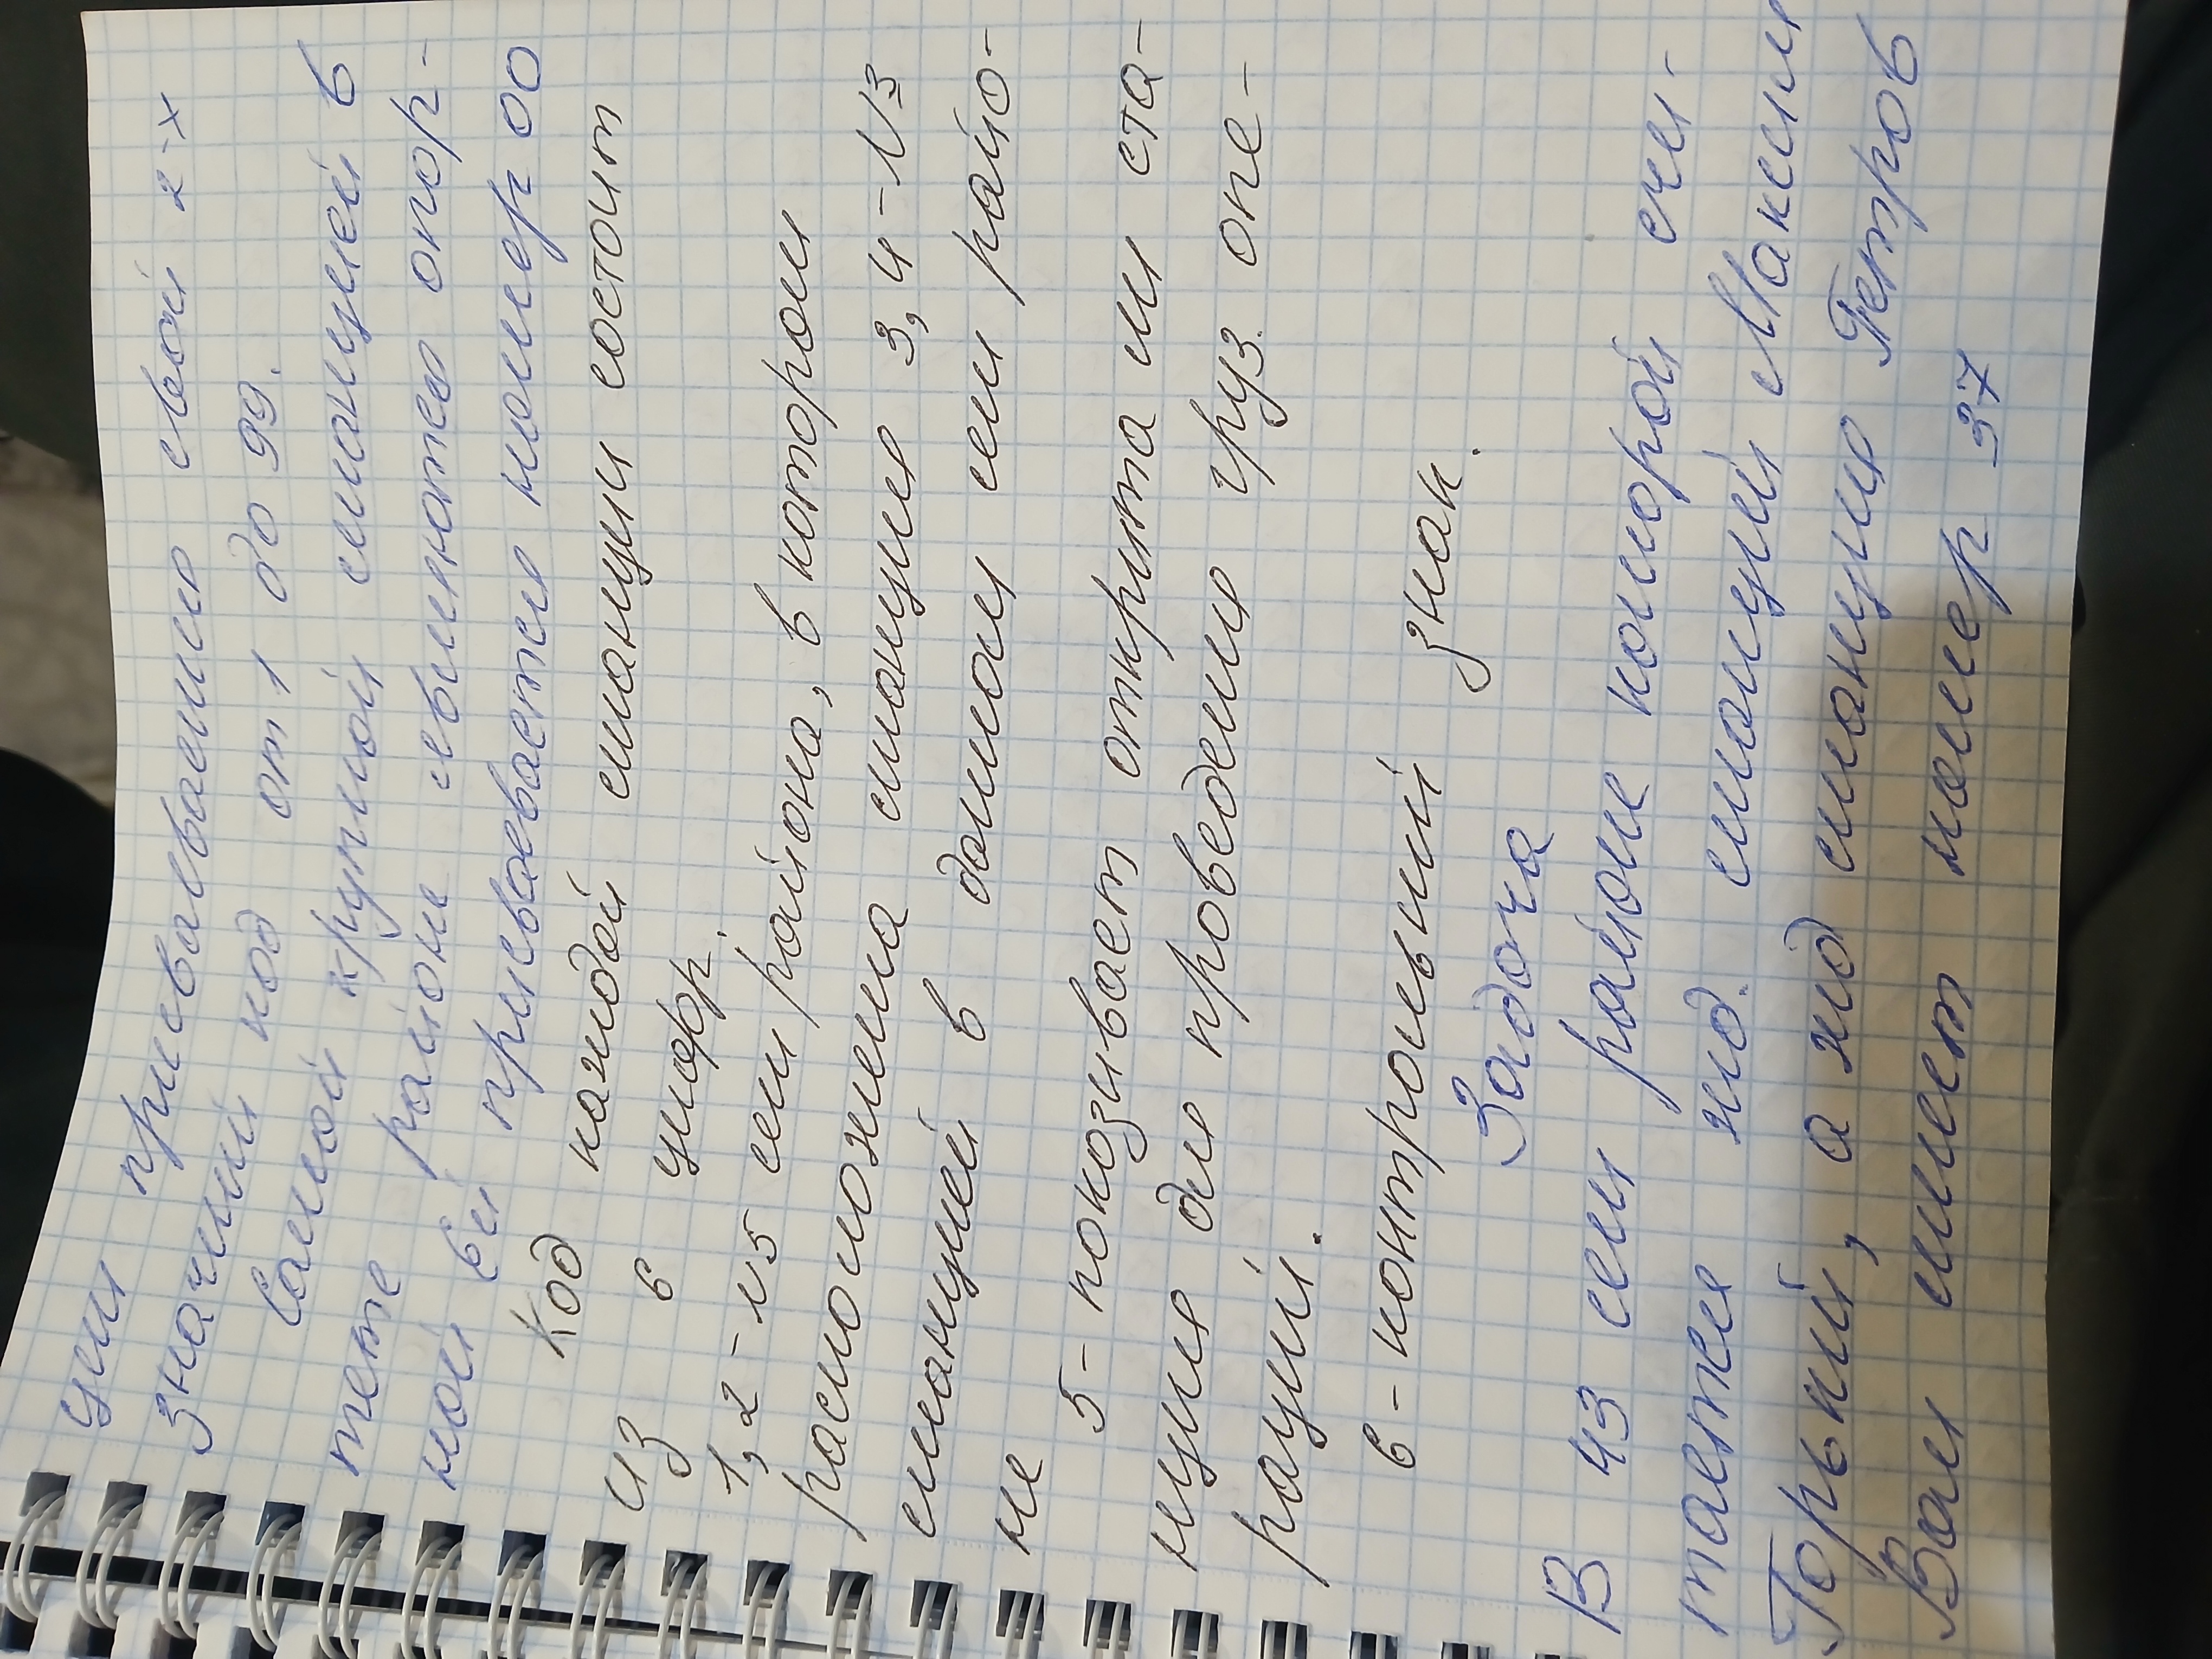 ции присваивается свой 2-х
значный код от 1 до 99.
Самой крупной станцией в
сет районе является опор-
ной ей присваивается номер 00
Код каждой станции состоит
из 6 цифр.
1, 2 - № сет района, в котором
расположена станция 3, 4 - №
станцией в данном сет райо-
не
5 - показывает открыта ли ста-
нция для проведения груз. опе-
раций.
6 - контрольный знак.
Задача
В 43 сет районе которой счи-
тается код. станций Максим
Горький, а код станция Петров
Вал имеет номер 37